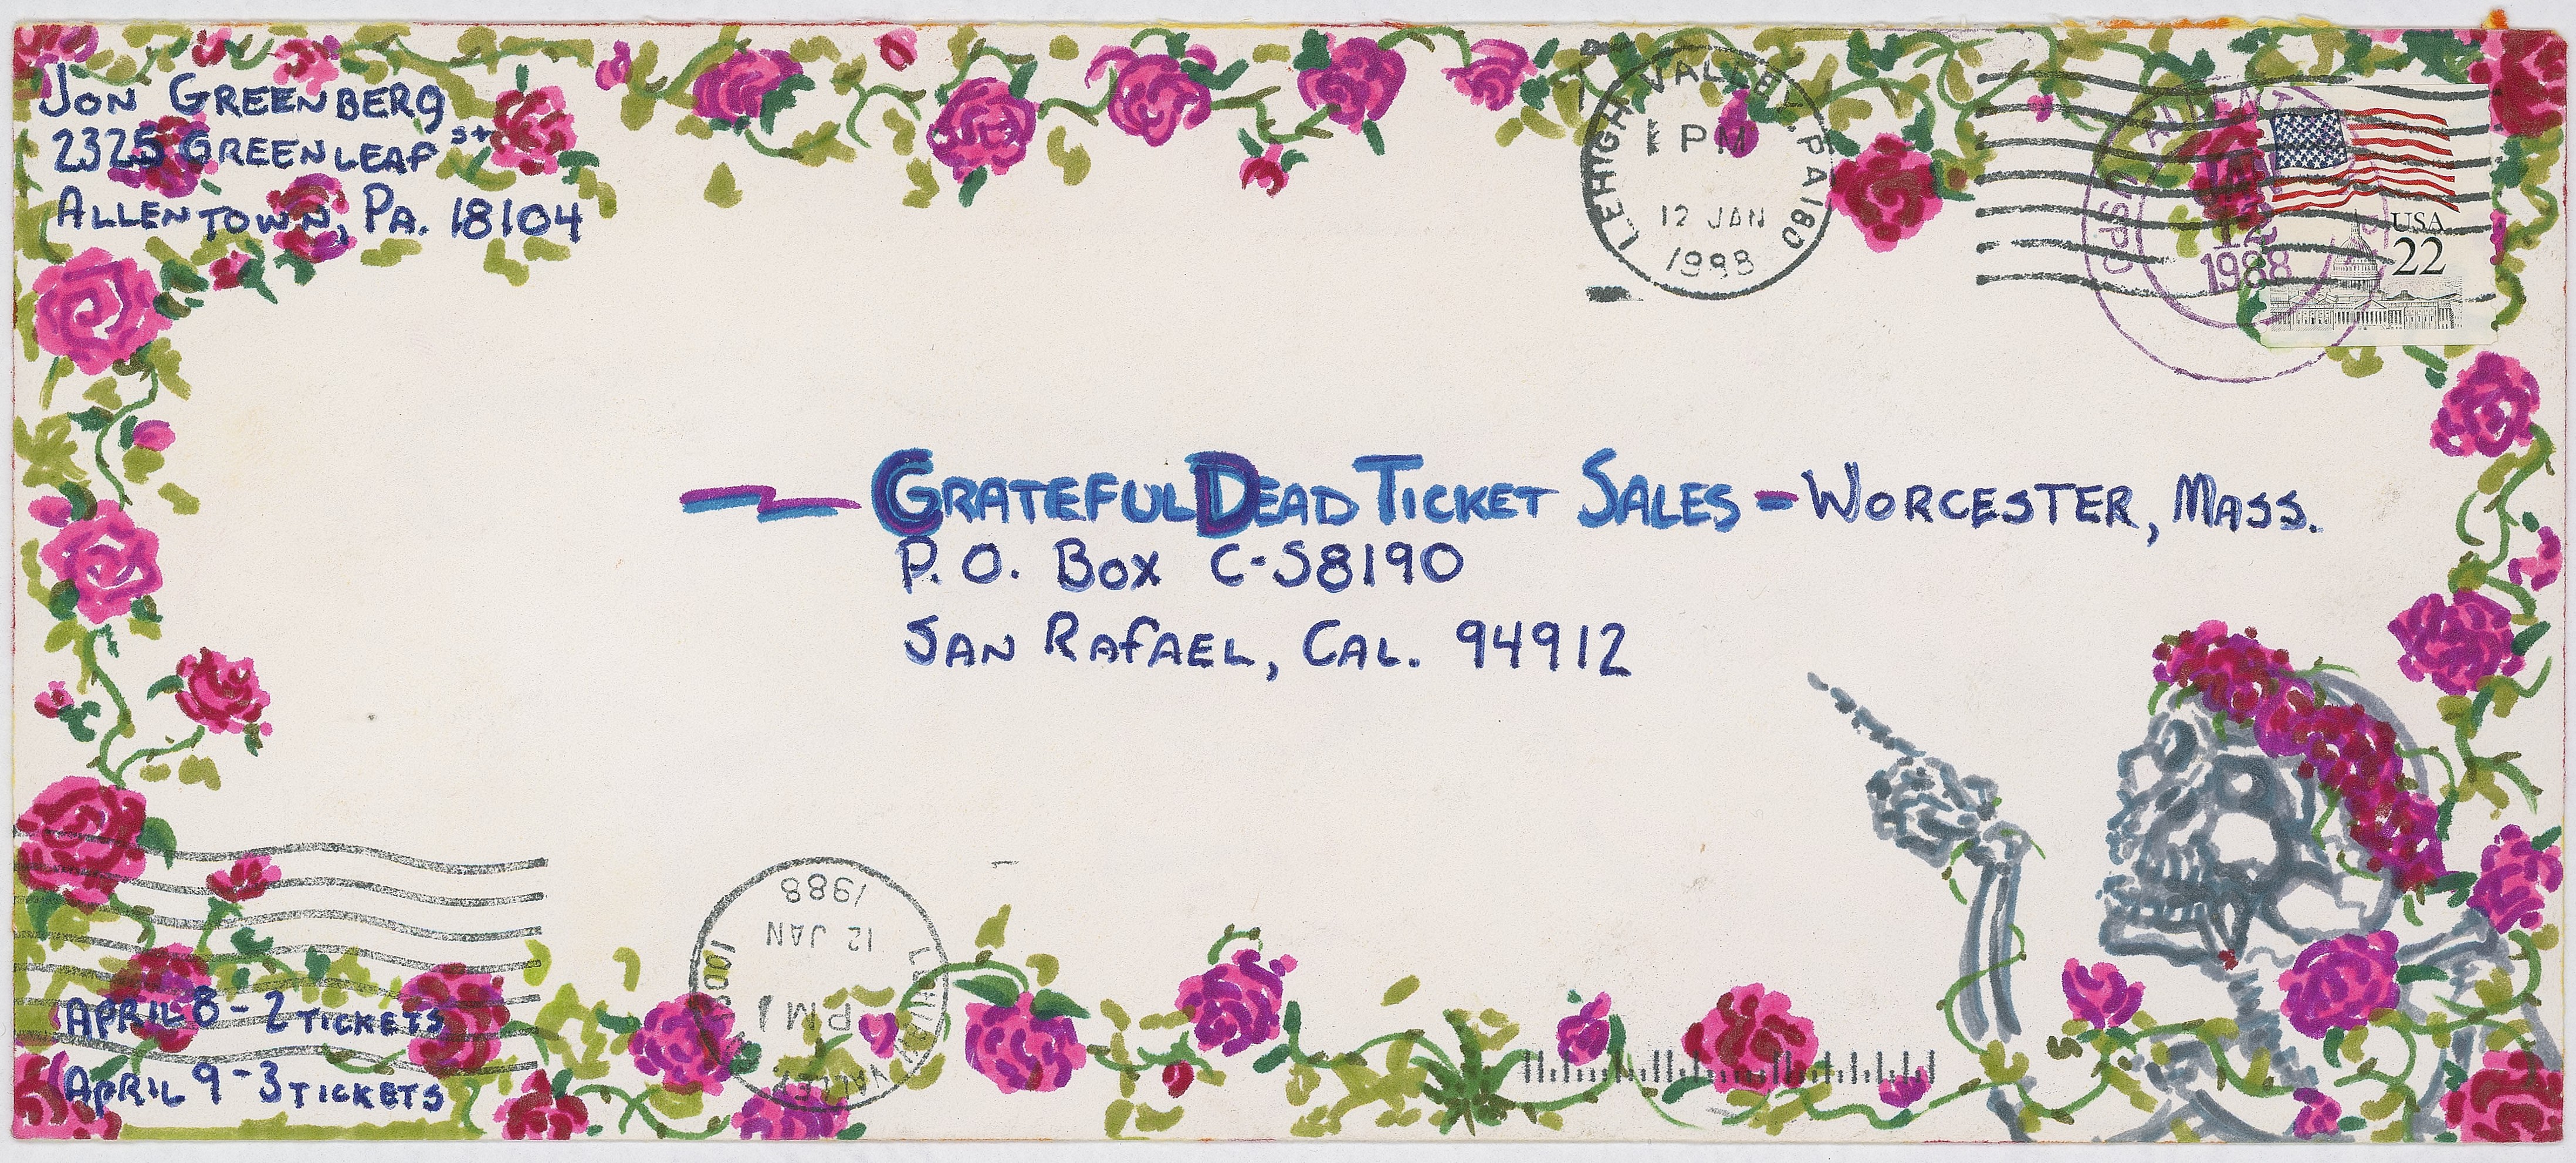 JON GREENBERG
2325 GREENLEAF St
ALLENTOWN, PA. 18104
LEHIGH VALLEY PA 180
1 PM
12 JAN
1988
12
1988
USPO
USA
22
GRATEFUL DEAD TICKET SALES - WORCESTER, MASS.
P.O. BOX C-S8190
SAN RAFAEL, CAL. 94912
LEHIGH VALLEY
1 PM
12 JAN
1988
APRIL 8 - 2 TICKETS
APRIL 9 - 3 TICKETS